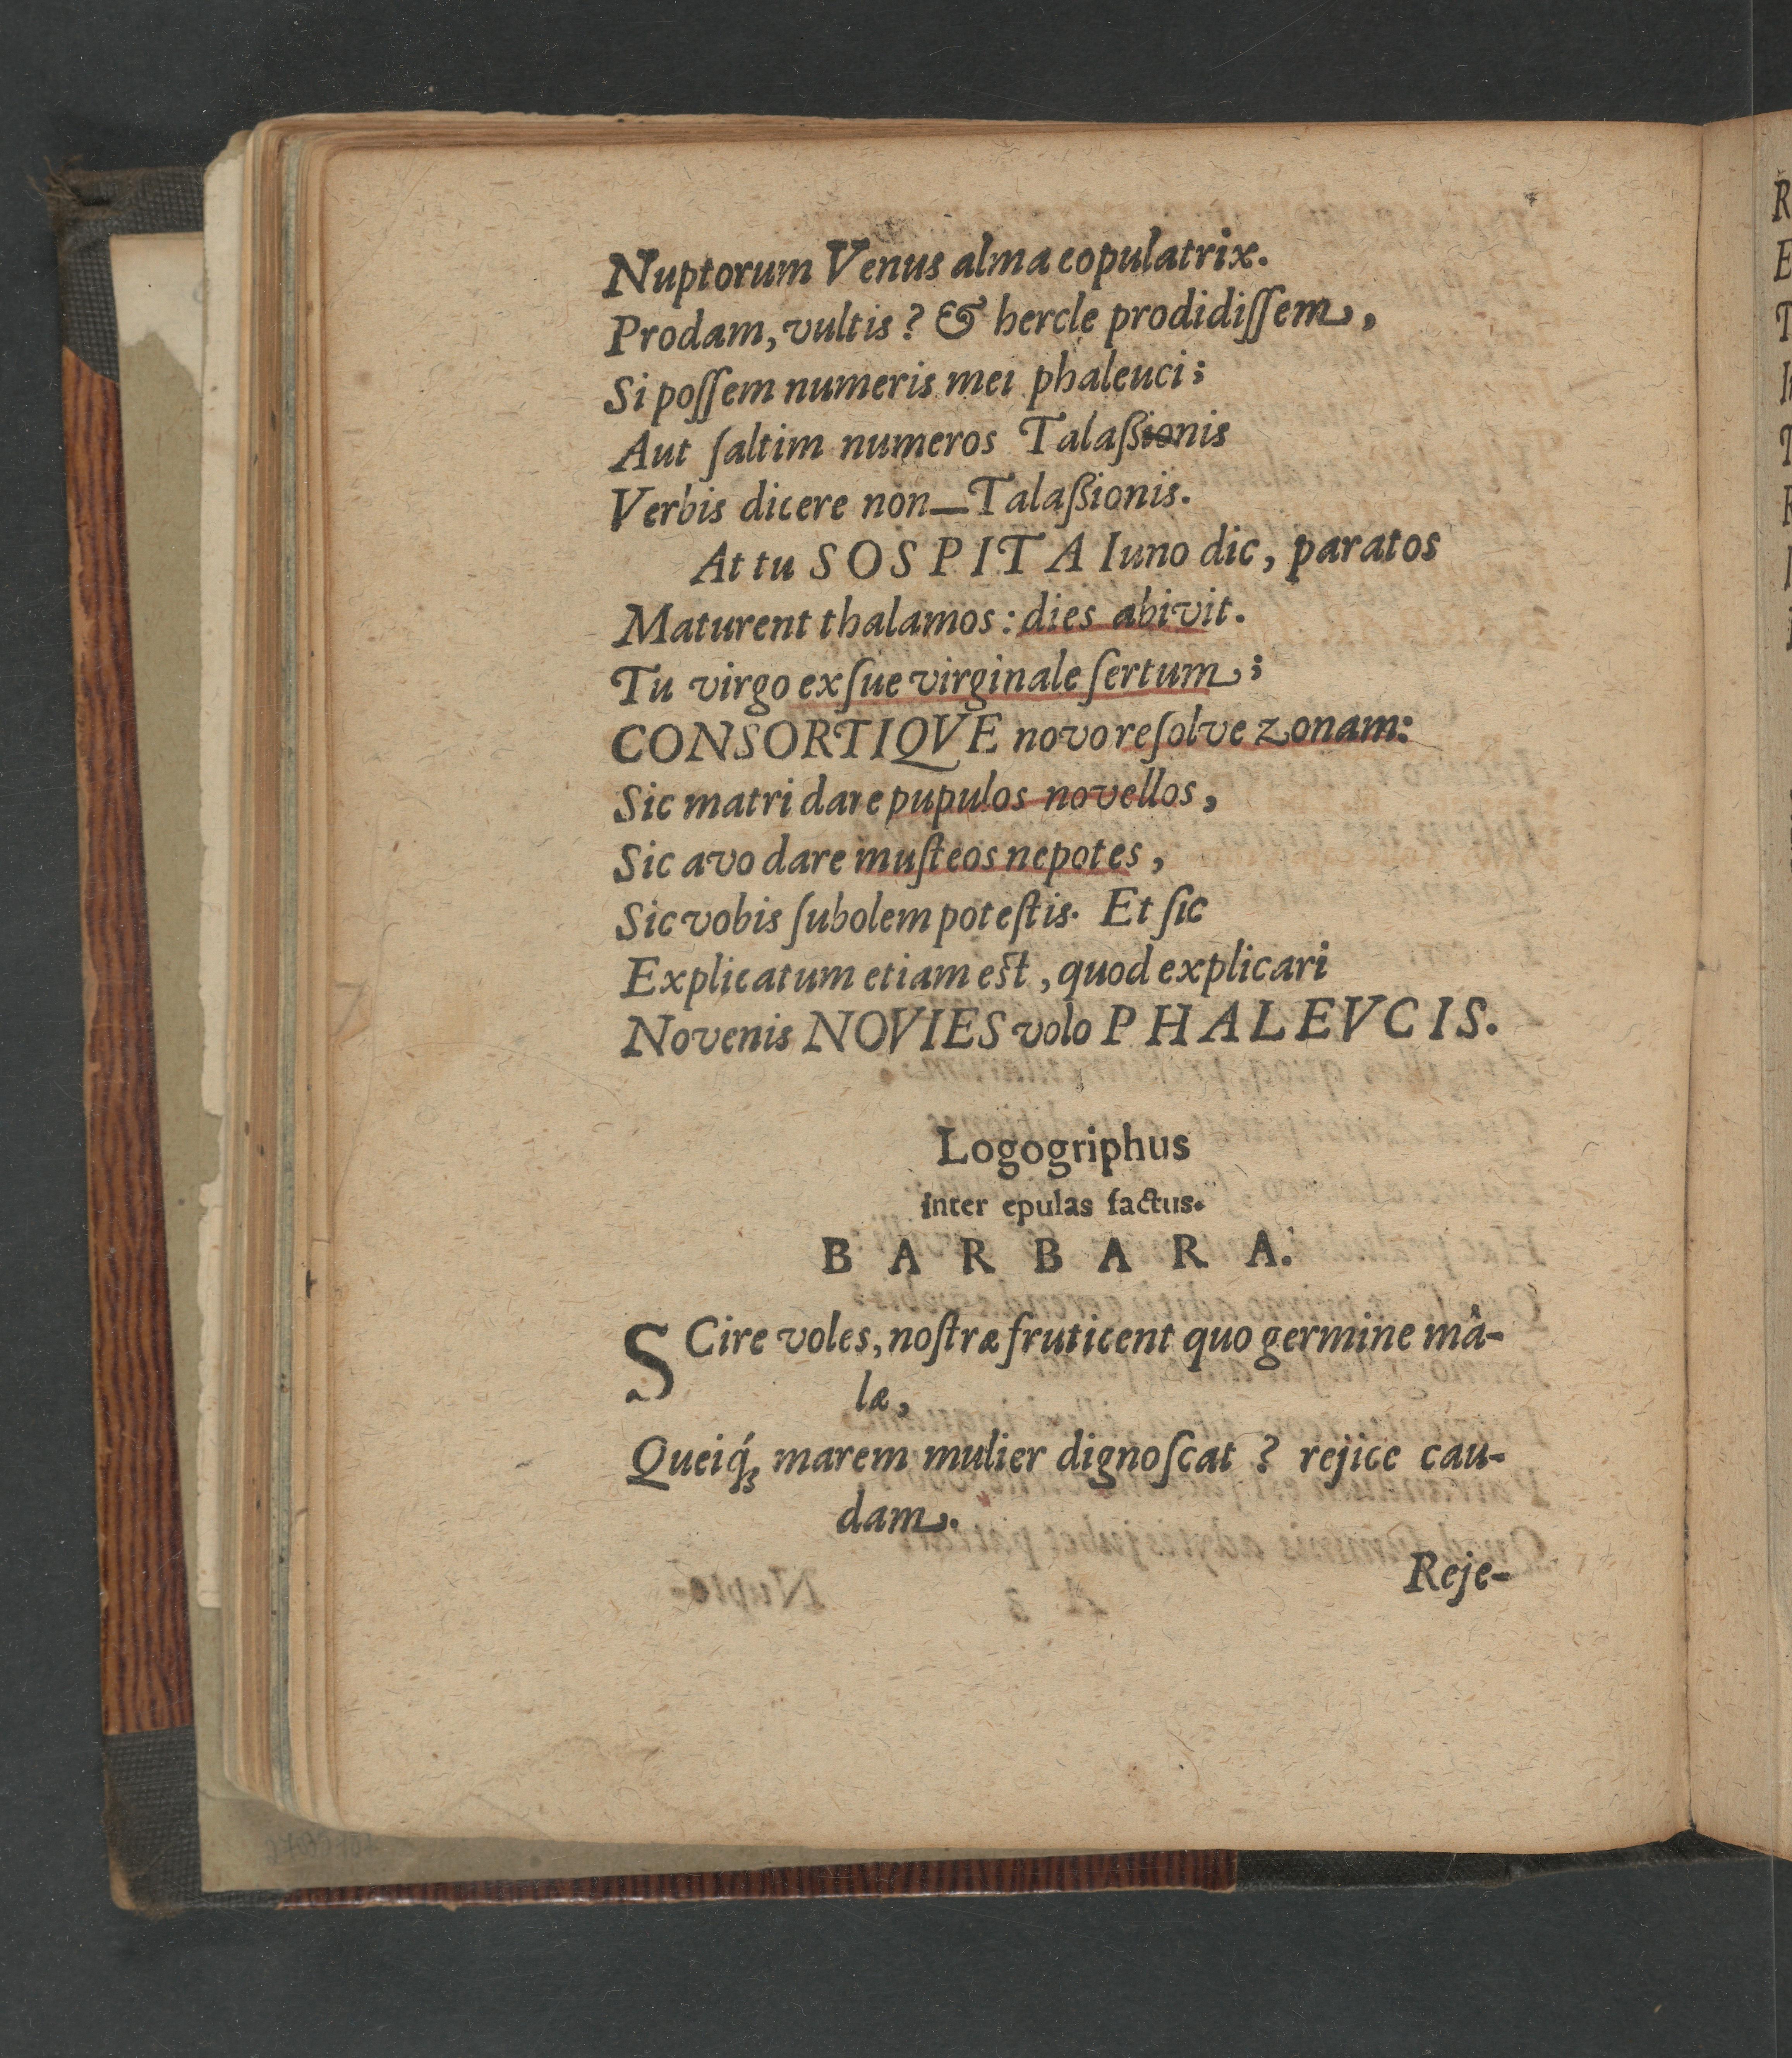 Nuptorum Venus alma copulatrix.
Prodam, vultis? & hercle prodidiſſem,
Si poſſem numeris mei phaleuci;
Aut ſaltim numeros Talaßionis
Verbis dicere non—Talaßionis.
At tu SOSPITA Iuno dic, paratos
Maturent thalamos: dies abivit.
Tu virgo exſue virginale ſertum;
CONSORTIQVE novo reſolve zonam:
Sic matri dare pupulos novellos,
Sic avo dare muſteos nepotes,
Sic vobis ſubolem poteſtis. Et ſic
Explicatum etiam eſt, quod explicari
Novenis NOVIES volo PHALEVCIS.
Logogriphus
inter epulas factus.
BARBARA.
SCire voles, noſtræ fruticent quo germine mâ-
læ,
Queiq́ꝫ marem mulier dignoſcat? rejice cau-
dam.
Reje-